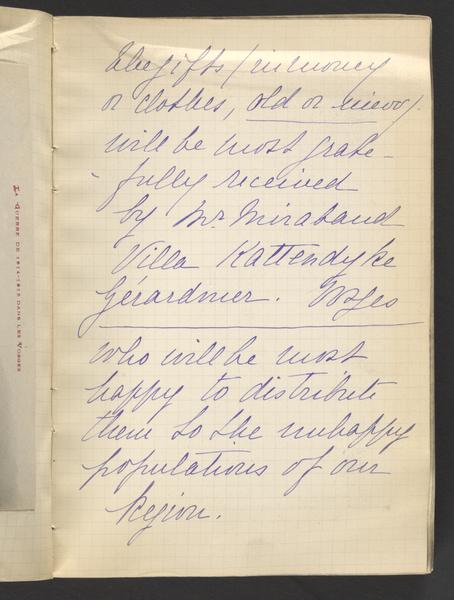 LA GUERRE DE 1914-1915 DANS LES VOSGES
The gifts (in money
or clothes, old or new)
will be most grate-
fully received
by Mr. Mirabaud
Villa Kattendyke
Gérardmer. Vosges
who will be most
happy to distribute
them to the unhappy
populations of our
Region.